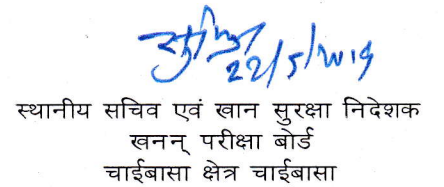 22/5/2019
स्थानीय सचिव एवं खान सुरक्षा निदेशक
खनन् परीक्षा बोर्ड
चाईबासा क्षेत्र चाईबासा